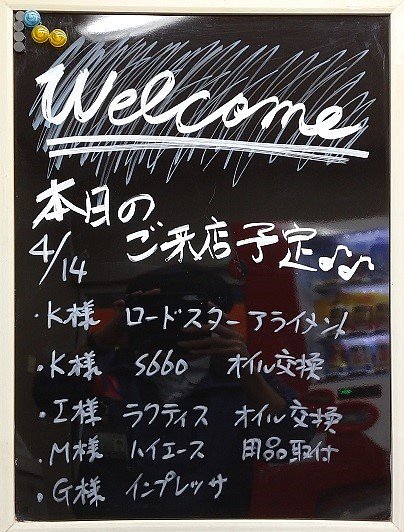 Welcome
本日の
4/14 ご来店予定♪♪
・K様 ロードスター アライメント
・K様 S660 オイル交換
・I様 ラクティス オイル交換
・M様 ハイエース 用品取付
・G様 インプレッサ